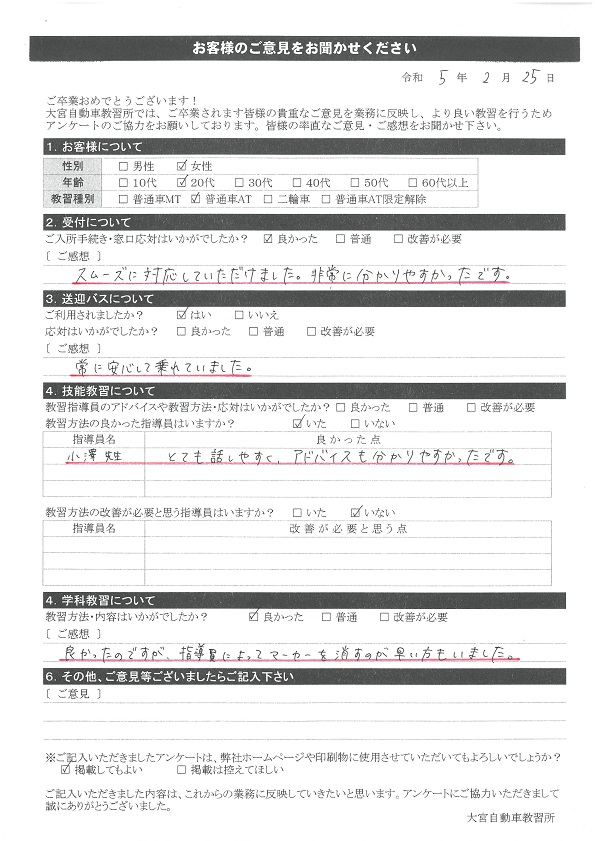 お客様のご意見をお聞かせください
令和 5 年 2 月 25 日
ご卒業おめでとうございます！
大宮自動車教習所では、ご卒業されます皆様の貴重なご意見を業務に反映し、より良い教習を行うため
アンケートのご協力をお願いしております。皆様の率直なご意見・ご感想をお聞かせ下さい。
1．お客様について
性別 □ 男性 ☑ 女性
年齢 □ 10代 ☑ 20代 □ 30代 □ 40代 □ 50代 □ 60代以上
教習種別 □ 普通車MT ☑ 普通車AT □ 二輪車 □ 普通車AT限定解除
2．受付について
ご入所手続き・窓口応対はいかがでしたか？ ☑ 良かった □ 普通 □ 改善が必要
〔 ご感想 〕
スムーズに対応していただけました。非常に分かりやすかったです。
3．送迎バスについて
ご利用されましたか？ ☑ はい □ いいえ
応対はいかがでしたか？ □ 良かった □ 普通 □ 改善が必要
〔 ご感想 〕
常に安心して乗れていました。
4．技能教習について
教習指導員のアドバイスや教習方法・応対はいかがでしたか？ □ 良かった □ 普通 □ 改善が必要
教習方法の良かった指導員はいますか？ ☑ いた □ いない
指導員名 良かった点
小澤 先生 とても話しやすく、アドバイスも分かりやすかったです。
教習方法の改善が必要と思う指導員はいますか？ □ いた ☑ いない
指導員名 改善が必要と思う点
4．学科教習について
教習方法・内容はいかがでしたか？ ☑ 良かった □ 普通 □ 改善が必要
〔 ご感想 〕
良かったのですが、指導員によってマーカーを消すのが早い方もいました。
6．その他、ご意見等ございましたらご記入下さい
〔 ご意見 〕
※ご記入いただきましたアンケートは、弊社ホームページや印刷物に使用させていただいてもよろしいでしょうか？
☑ 掲載してもよい □ 掲載は控えてほしい
ご記入いただきました内容は、これからの業務に反映していきたいと思います。アンケートにご協力いただきまして
誠にありがとうございました。
大宮自動車教習所